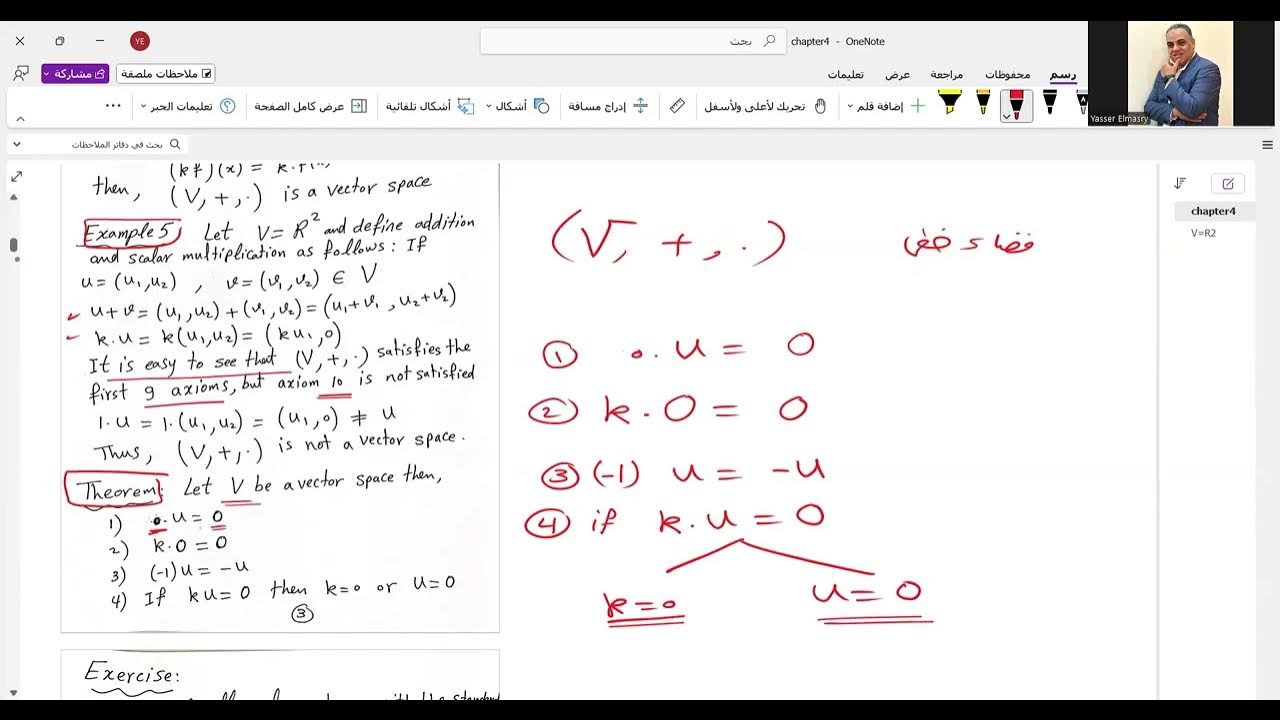 YE
بحث
chapter4 - OneNote
مشاركة
ملاحظات ملصقة
رسم
محفوظات
مراجعة
عرض
تعليمات
إضافة قلم
تحريك لأعلى ولأسفل
إدراج مسافة
أشكال
أشكال تلقائية
عرض كامل الصفحة
تعليمات الحبر
Yasser Elmasry
بحث في دفاتر الملاحظات
chapter4
V=R2
(kf)(x) = k.f(x)
then, (V, +, ·) is a vector space
Example 5 Let V = R² and define addition
and scalar multiplication as follows: If
u = (u₁, u₂) , v = (v₁, v₂) ∈ V
u + v = (u₁, u₂) + (v₁, v₂) = (u₁ + v₁ , u₂ + v₂)
k. u = k(u₁, u₂) = (k u₁, 0)
It is easy to see that (V, +, ·) satisfies the
first 9 axioms, but axiom 10 is not satisfied
1. u = 1. (u₁, u₂) = (u₁, 0) ≠ u
Thus, (V, +, ·) is not a vector space.
Theorem: Let V be a vector space then,
1) 0. u = 0
2) k. 0 = 0
3) (-1) u = -u
4) If k u = 0 then k = 0 or u = 0
3
Exercise:
(V, +, .)
فضاء خطى
① 0. u = 0
② k . 0 = 0
③ (-1) u = -u
④ if k . u = 0
k = 0
u = 0